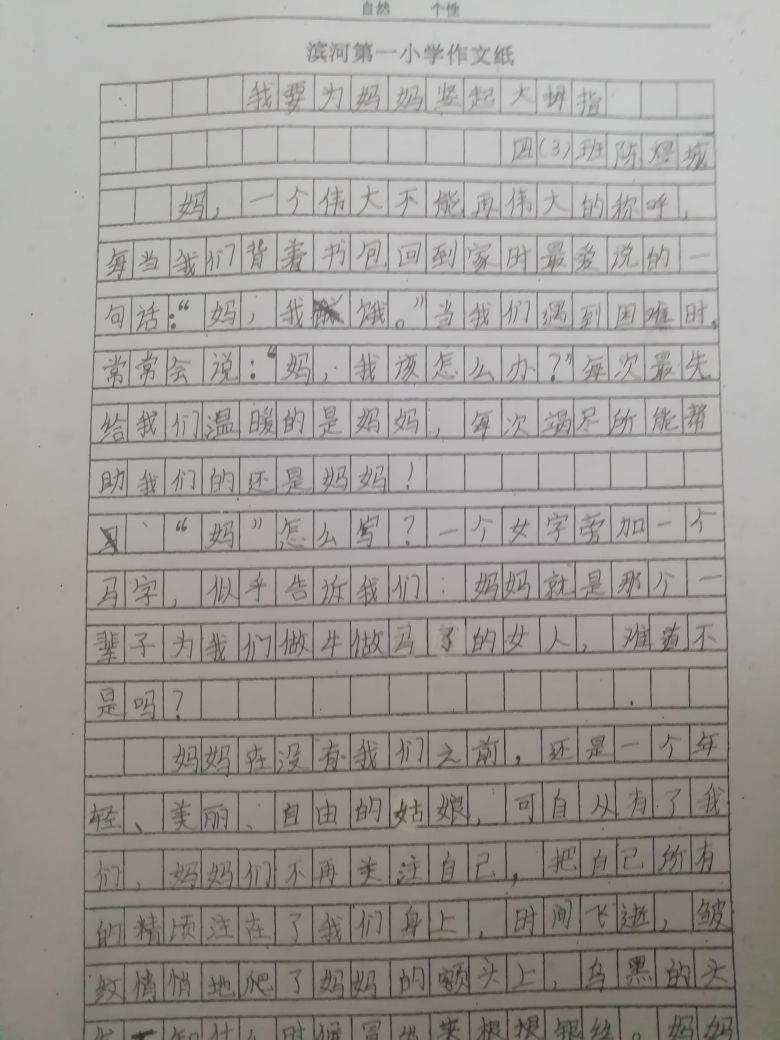 自然 个性
滨河第一小学作文纸
我要为妈妈竖起大拇指
四(3)班陈煜城
妈,一个伟大不能再伟大的称呼,
每当我们背着书包回到家时最爱说的一
句话:“妈,我饿。”当我们遇到困难时,
常常会说:“妈,我该怎么办?”每次最先
给我们温暖的是妈妈,每次竭尽所能帮
助我们的还是妈妈!
“妈”怎么写?一个女字旁加一个
马字,似乎告诉我们:妈妈就是那个一
辈子为我们做牛做马了的女人,难道不
是吗?
妈妈在没有我们之前,还是一个年
轻、美丽、自由的姑娘,可自从有了我
们,妈妈们不再关注自己,把自己所有
的精倾注在了我们身上,时间飞逝,皱
纹悄悄地爬了妈妈的额头上,乌黑的头
知什么时候冒出来根根银丝。妈妈